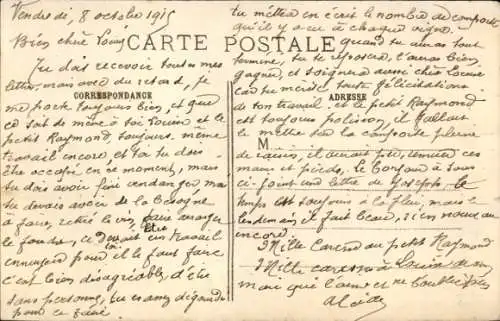 Vendredi, 8 octobre 1915
Bien chère Louise
CARTE POSTALE
CORRESPONDANCE
ADRESSE
M
Tu dois recevoir toutes mes
lettres, mais avec du retard, je
me porte toujours bien, et que
ce soit de même à toi Louise et le
petit Raymond, toujours même
travail encore, et toi tu dois
être occupée en ce moment, mais
tu dois avoir fini vendanger mais
tu devais avoir de la besogne
à faire, le vin, faire
le fondre, ce travail
ennuyeux pour il le faut faire
c'est bien désagréable d'être
sans personne, tu es assez dégourdie
pour ce faire
tu mettras en écrit le nombre de comporte
qu'il y a eu à chaque vigne.
quand tu auras tout
terminé, tu te reposeras, l'auras bien
gagné, et soignera
car tu mérites toute félicitations
de ton travail, et le petit Raymond
est toujours polisson, il fallait
le mettre dans la comporte pleine
de raisins, il aurait
mains et pieds, le bonjour à tous
ci-joint une lettre de Joseph, le
temps est toujours à la pluie, mais le
lendemain, il fait beau,
encore.
Mille caresses au petit Raymond
Mille caresses à Louise de son
mari que l'aime et ne l'oublie pas